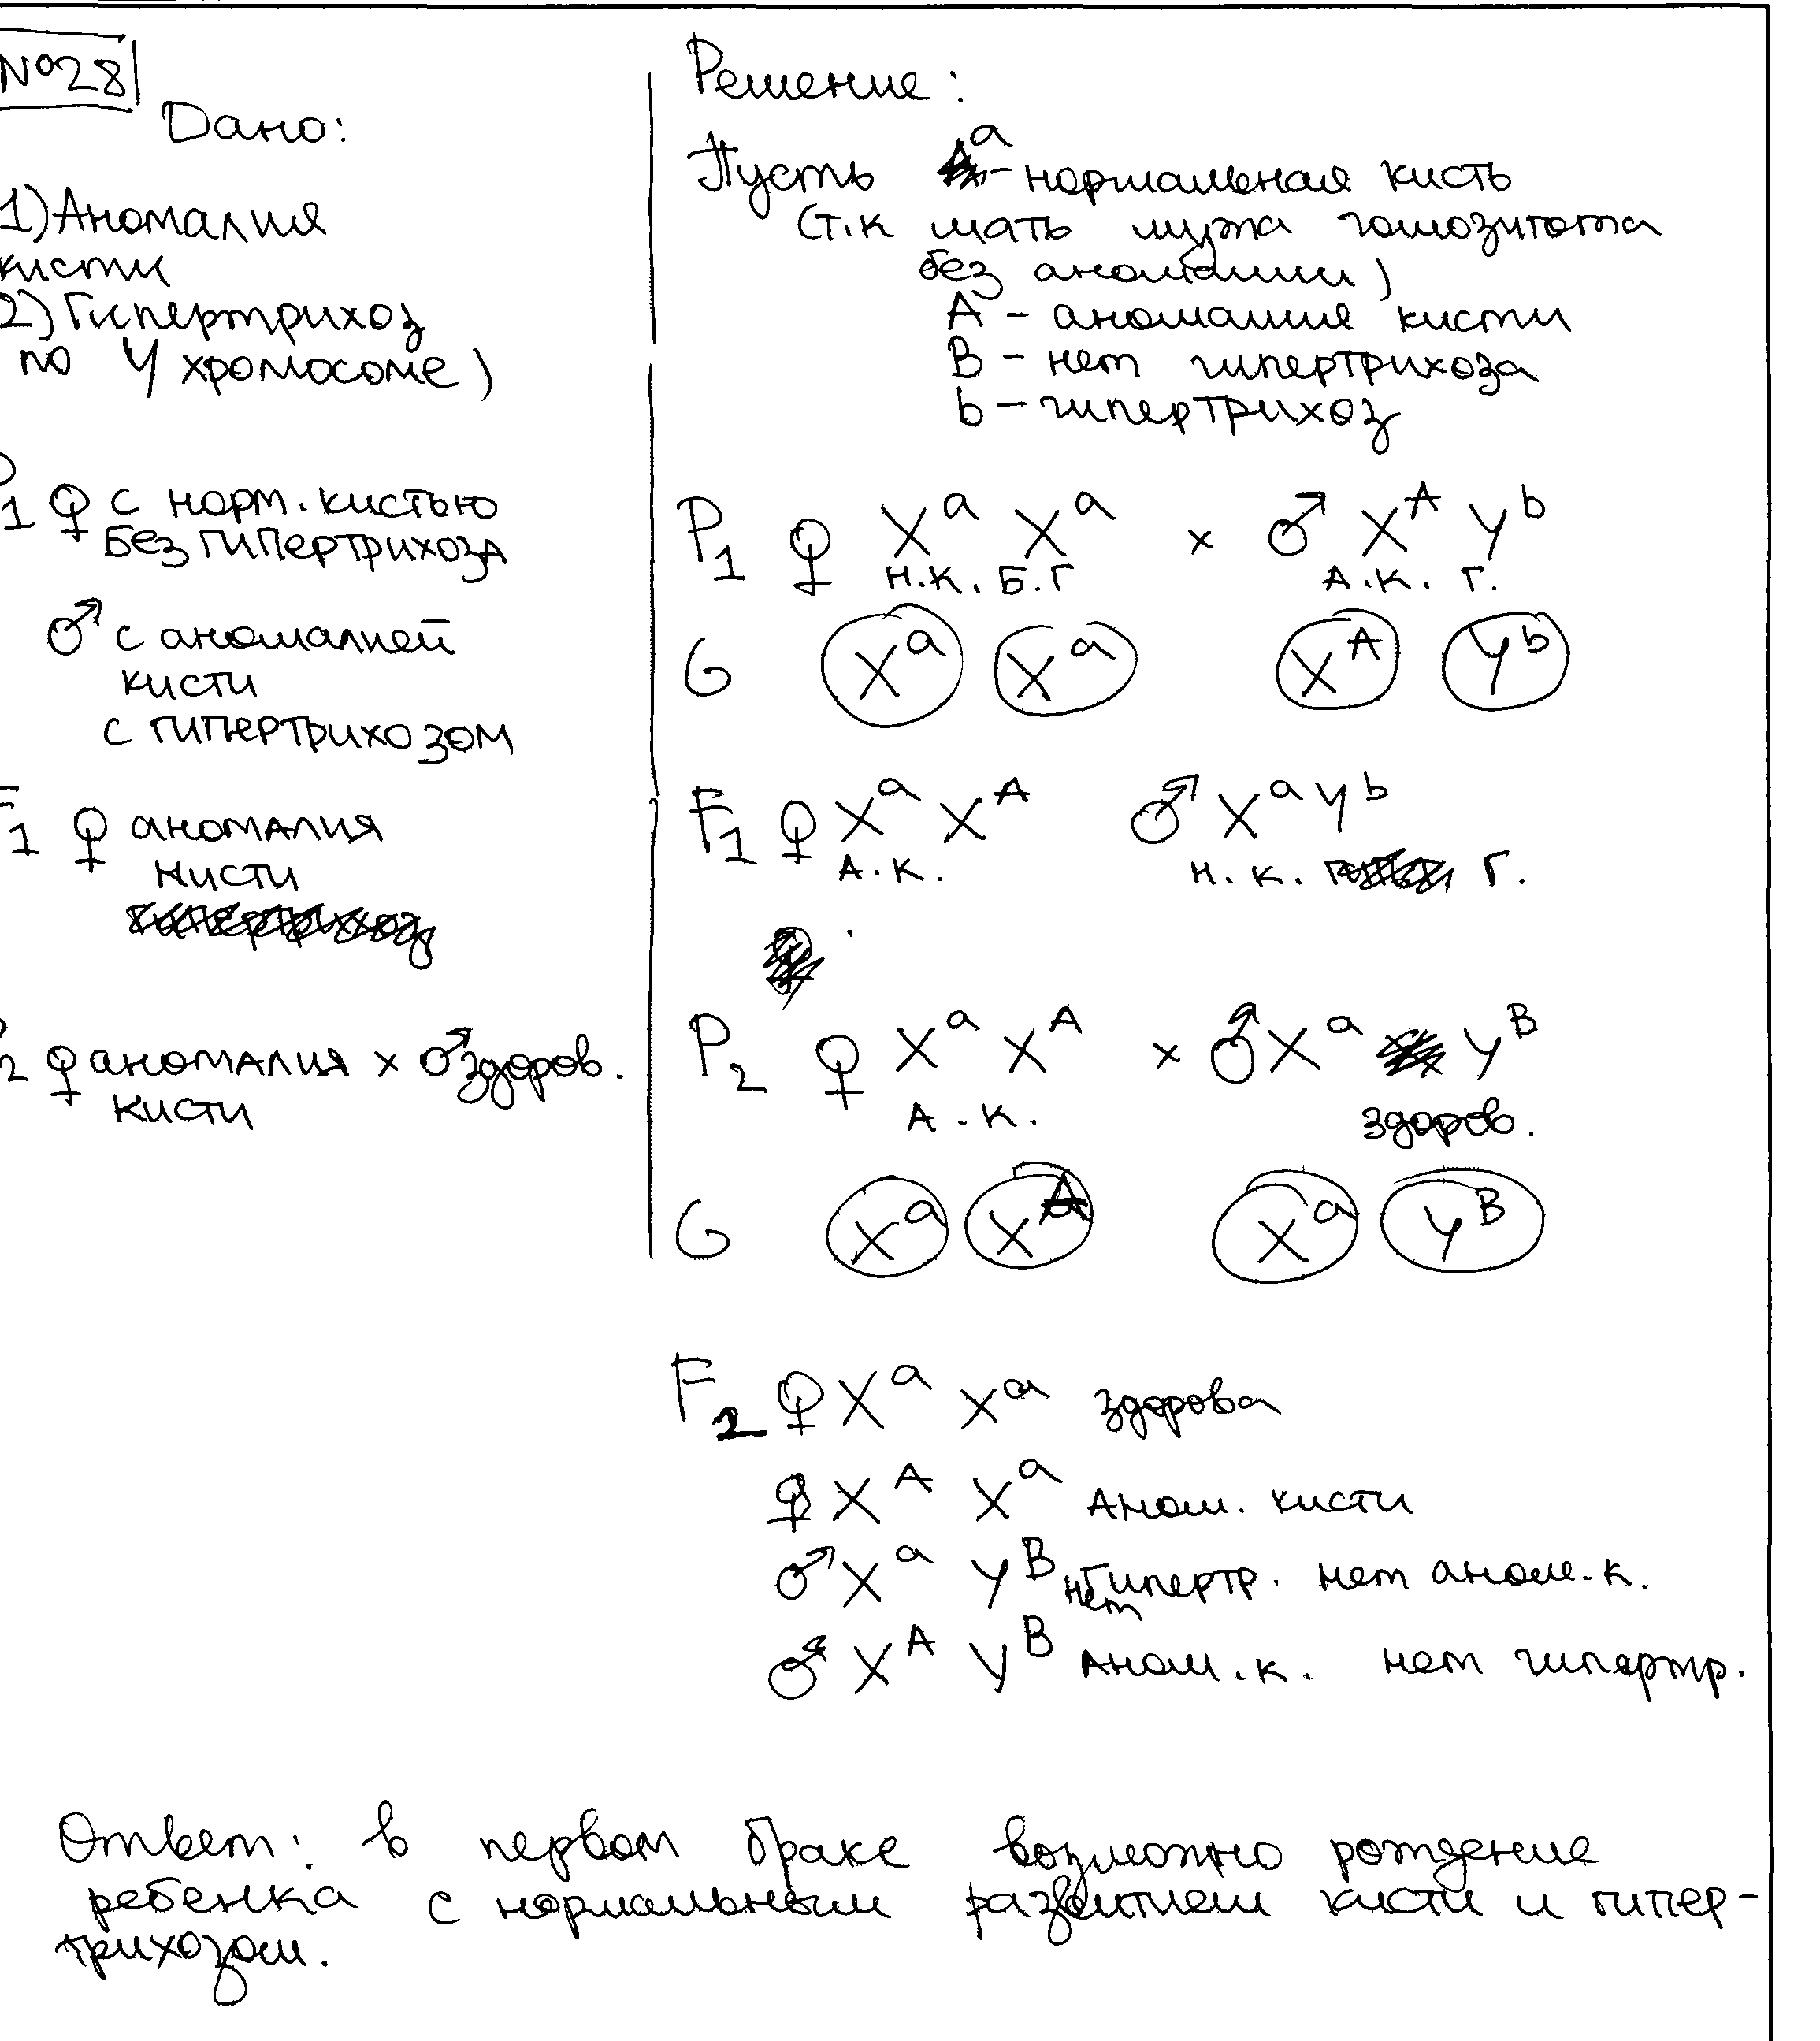 №28
Дано:
1) Аномалия
кисти
2) Гипертрихоз
по Y хромосоме)
P
1 ♀ с норм. кистью
без гипертрихоза
♂ с аномалией
кисти
с гипертрихозом
F
1 ♀ аномалия
кисти
P
2 ♀ аномалия x ♂ здоров.
кисти
Решение:
Пусть a - нормальная кисть
(т.к мать мужа гомозигота
без аномалии)
A - аномалия кисти
B - нет гипертрихоза
b - гипертрихоз
P1 ♀ Xᵃ Xᵃ x ♂ Xᴬ Yᵇ
н.к. Б.Г А.К. Г.
G Xᵃ Xᵃ Xᴬ Yᵇ
F1 ♀ Xᵃ Xᴬ ♂ Xᵃ Yᵇ
А.К. н.к. Г.
P2 ♀ Xᵃ Xᴬ x ♂ Xᵃ Yᴮ
А.К. здоров.
G Xᵃ Xᴬ Xᵃ Yᴮ
F2 ♀ Xᵃ Xᵃ здорова
♀ Xᴬ Xᵃ Аном. кисти
♂ Xᵃ Yᴮ нет Гипертр. нет аном.к.
♂ Xᴬ Yᴮ Аном.к. нет гипертр.
Ответ: в первом браке возможно рождение
ребенка с нормальным развитием кисти и гипер-
трихозом.